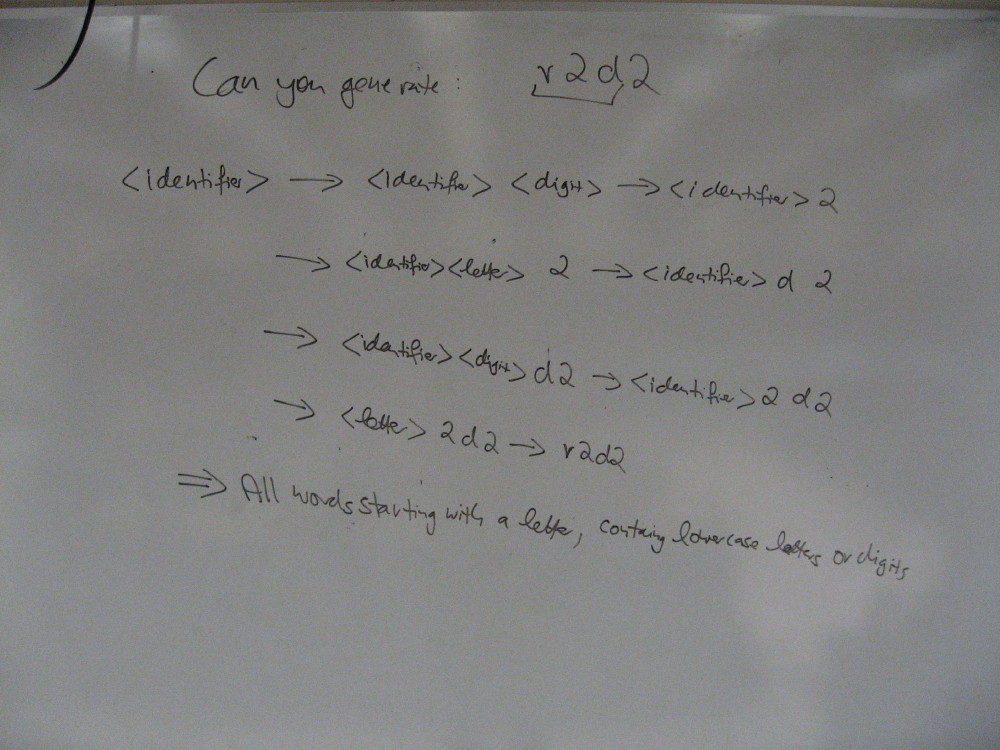 Can you generate: r2d2
<identifier> → <identifier> <digit> → <identifier> 2
→ <identifier><letter> 2 → <identifier> d 2
→ <identifier><digit> d2 → <identifier> 2 d2
→ <letter> 2d2 → r2d2
⇒ All words starting with a letter, containg lowercase letters or digits